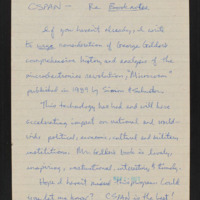 CSPAN - Re Booknotes
If you haven't already, I write
to urge consideration of George Gilder's
comprehensive history and analysis of the
microelectronics revolution, "Microcosm"
published in 1989 by Simon & Schuster.
This technology has had and will have
accelerating impact on national and world-
wide political, economic, cultural and military
institutions. Mr. Gilder's book is lively,
inspiring, instructional, interesting & timely.
Hope I haven't missed this program. Could
you let me know? CSPAN is the best!